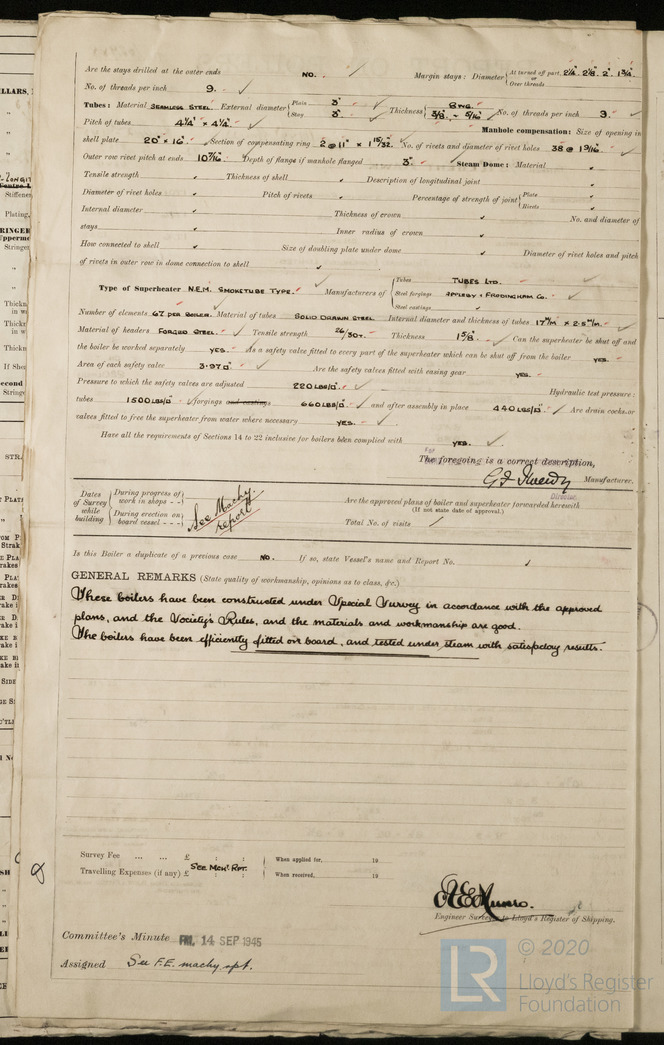 Are the stays drilled at the outer ends NO. Margin stays: Diameter { At turned off part, 2¼" 2⅛" 2" 1¾"
or
Over threads
No. of threads per inch 9.
Tubes: Material SEAMLESS STEEL. External diameter { Plain 3" Thickness { 8 WG. No. of threads per inch 9.
Stay 3" 3/8" ~ 5/16"
Pitch of tubes 4¼" × 4¼" Manhole compensation: Size of opening in
shell plate 20" × 16" Section of compensating ring 2 @ 11" × 1 15/32" No. of rivets and diameter of rivet holes 38 @ 1 3/16"
Outer row rivet pitch at ends 10 7/16" Depth of flange if manhole flanged 3" Steam Dome: Material
Tensile strength Thickness of shell Description of longitudinal joint
Diameter of rivet holes Pitch of rivets Percentage of strength of joint { Plate
Rivets
Internal diameter Thickness of crown No. and diameter of
stays Inner radius of crown
How connected to shell Size of doubling plate under dome Diameter of rivet holes and pitch
of rivets in outer row in dome connection to shell
Type of Superheater N.E.M. SMOKETUBE TYPE. Manufacturers of { Tubes TUBES LTD.
Steel forgings APPLEBY - FRODINGHAM CO.
Steel castings
Number of elements 67 PER BOILER. Material of tubes SOLID DRAWN STEEL Internal diameter and thickness of tubes 17 M/M × 2.5 M/M.
Material of headers FORGED STEEL. Tensile strength 26/30T. Thickness 1 5/8" Can the superheater be shut off and
the boiler be worked separately YES. Is a safety valve fitted to every part of the superheater which can be shut off from the boiler YES.
Area of each safety valve 3.97□" Are the safety valves fitted with easing gear YES.
Pressure to which the safety valves are adjusted 220 LBS/□". Hydraulic test pressure:
tubes 1500 LBS/□" forgings and castings 660 LBS/□". and after assembly in place 440 LBS/□". Are drain cocks or
valves fitted to free the superheater from water where necessary YES.
Have all the requirements of Sections 14 to 22 inclusive for boilers been complied with YES.
The foregoing is a correct description,
Manufacturer.
Director.
Dates of Survey while building { During progress of work in shops - -
During erection on board vessel - - -
See Machy. report.
Are the approved plans of boiler and superheater forwarded herewith
(If not state date of approval.)
Total No. of visits
Is this Boiler a duplicate of a previous case NO. If so, state Vessel's name and Report No.
GENERAL REMARKS (State quality of workmanship, opinions as to class, &c.)
These boilers have been constructed under Special Survey in accordance with the approved
plans, and the Society's Rules, and the materials and workmanship are good.
The boilers have been efficiently fitted on board, and tested under steam with satisfactory results.
Survey Fee ... ... £ : : When applied for, 19
SEE MCHY. RPT.
Travelling Expenses (if any) £ : : When received, 19
A E Munro.
Engineer Surveyor to Lloyd's Register of Shipping.
Committee's Minute FRI. 14 SEP 1945
Assigned See F.E. machy rpt.
LR © 2020
Lloyd's Register
Foundation